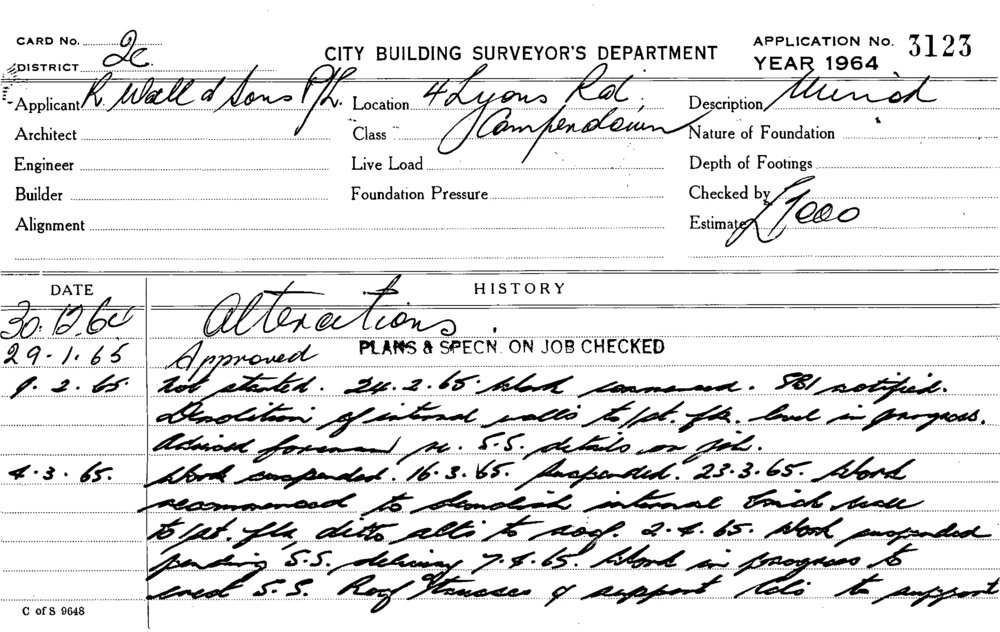 CARD No. 2c CITY BUILDING SURVEYOR'S DEPARTMENT APPLICATION No. 3123
DISTRICT YEAR 1964
Applicant R. Wall & Sons P/L. Location 4 Lyons Rd, Description Minor
Architect Class Camperdown Nature of Foundation
Engineer Live Load Depth of Footings
Builder Foundation Pressure Checked by
Alignment Estimate £7000
DATE HISTORY
30.12.64 Alterations.
29.1.65 Approved PLANS & SPECN. ON JOB CHECKED
9.2.65. not started. 24.2.65. Work commenced. SBI notified.
Demolition of internal walls to 1st. flr. level in progress.
Advised foreman re. S.S. details on job.
4.3.65. Work suspended. 16.3.65. Suspended. 23.3.65. Work
recommenced to demolish internal brick wall
to 1st. flr, ditto alts to roof. 2.4.65. Work suspended
pending S.S. delivery 7.4.65. Work in progress to
erect S.S. Roof Trusses & support to support
C of S 9648